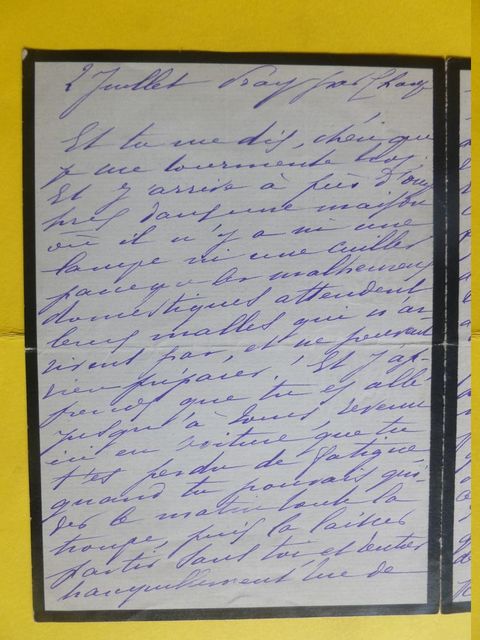 2 Juillet Pray par Chouzy
Et tu me dis, chéri que
je me tourmente trop
Et j'arrive à près d'onze
hres dans une maison
où il n'y a ni une
lampe ni une cuiller
parceque les malheureux
domestiques attendent
leurs malles qui n'ar
rivent pas, et ne peuvent
rien préparer. Et j'ap-
prends que tu es allé
jusqu'à Tours revenu
ici en voiture que tu
t'es perdu de fatigue
quand tu pouvais gui-
der le matin toute la
troupe, puis la laisser
partir sans toi et rentrer
tranquillement rue de